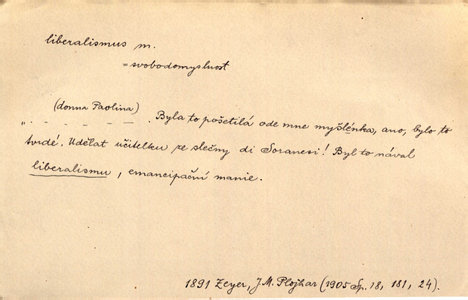 liberalismus m.
= svobodomyslnost
(donna Paolina)
„. – – – – –. Byla to pošetilá ode mne myšlénka, ano, bylo to
tvrdé. Udělat učitelku ze slečny di Soranesi! Byl to nával
liberalismu, emancipační manie.
1891 Zeyer, J. M. Plojhar (1905 Sp. 18, 181, 24).